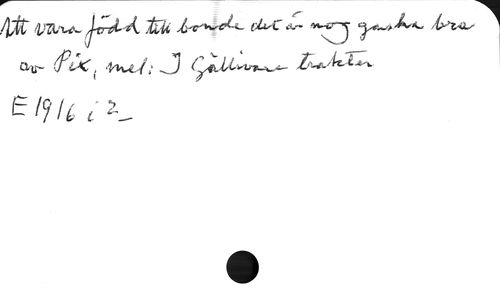 Att vara född till bonde det är nog ganska bra
av Pix, mel: I Gällivare trakter
E 1916 i 2